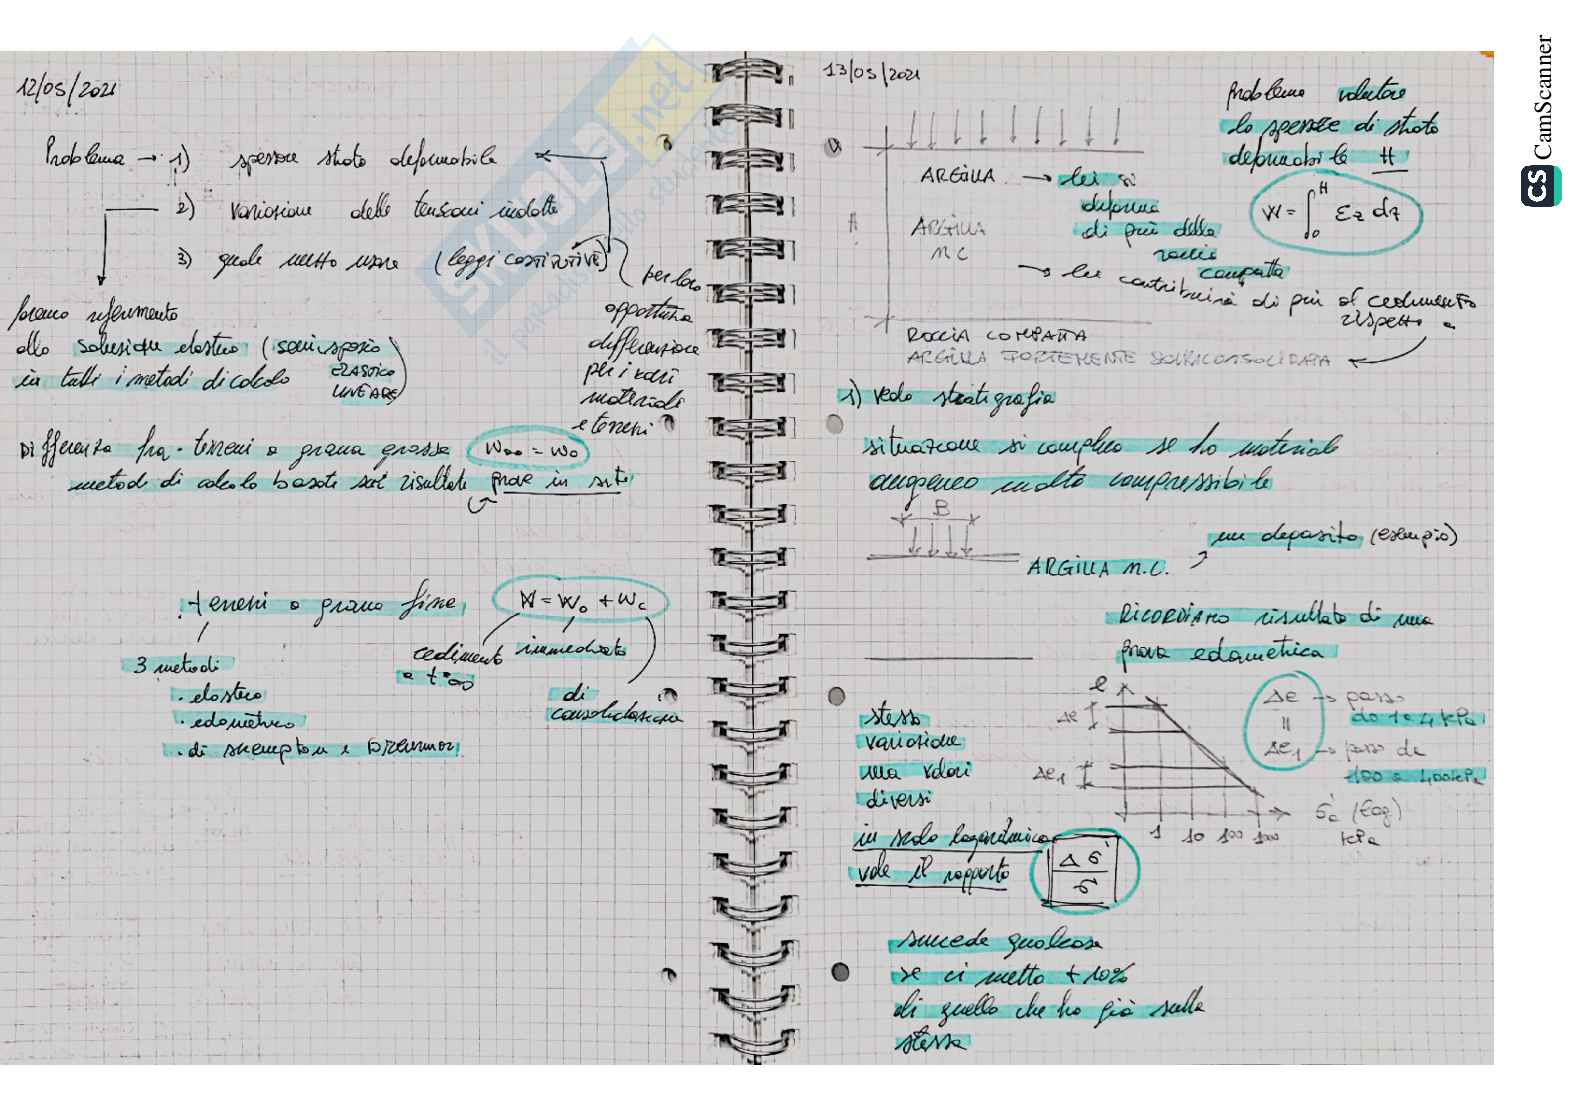 12/05/2021
Problema → 1) spessore strato deformabile
2) variazione delle tensioni indotte
3) quale mezzo usare (leggi COSTITUTIVE)
per loro
opportuna
differenziazione
per i vari
materiali
e terreni
faremo riferimento
alla soluzione elastica (semispazio
ELASTICO
LINEARE)
in tutti i metodi di calcolo
Differenza fra · terreni a grana grossa w∞ = w0
metodi di calcolo basati sui risultati prove in sito
· terreni a grana fine W = W0 + Wc
cedimento
a t=∞
immediato
di
consolidazione
3 metodi
· elastico
· edometrico
· di skempton e BJERRUM
13/05/2021
Problema valutare
lo spessore di strato
deformabile H
W = ∫0H εz dz
ARGILLA → lei si
deforma
di più della
roccia
compatta
H
ARGILLA
N.C
→ lei contribuirà di più al cedimento
rispetto a
ROCCIA COMPATTA
ARGILLA FORTEMENTE SOVRACONSOLIDATA
1) Vedo stratigrafia
situazione si complica se ho materiale
omogeneo molto compressibile
B
un deposito (esempio)
ARGILLA N.C.
RICORDIAMO risultato di una
prova edometrica
e
Δe
Δe1
1 10 100 1000
σ'a (Log)
kPa
Δe → passo
da 1 a 4 kPa
=
Δe1 → passo da
100 a 400 kPa
stessa
variazione
ma valori
diversi
in scala logaritmica
vale il rapporto
Δσ'
σ'
succede qualcosa
se ci metto + 10%
di quello che ho già sulla
stessa
SKUOLA.net
CS CamScanner